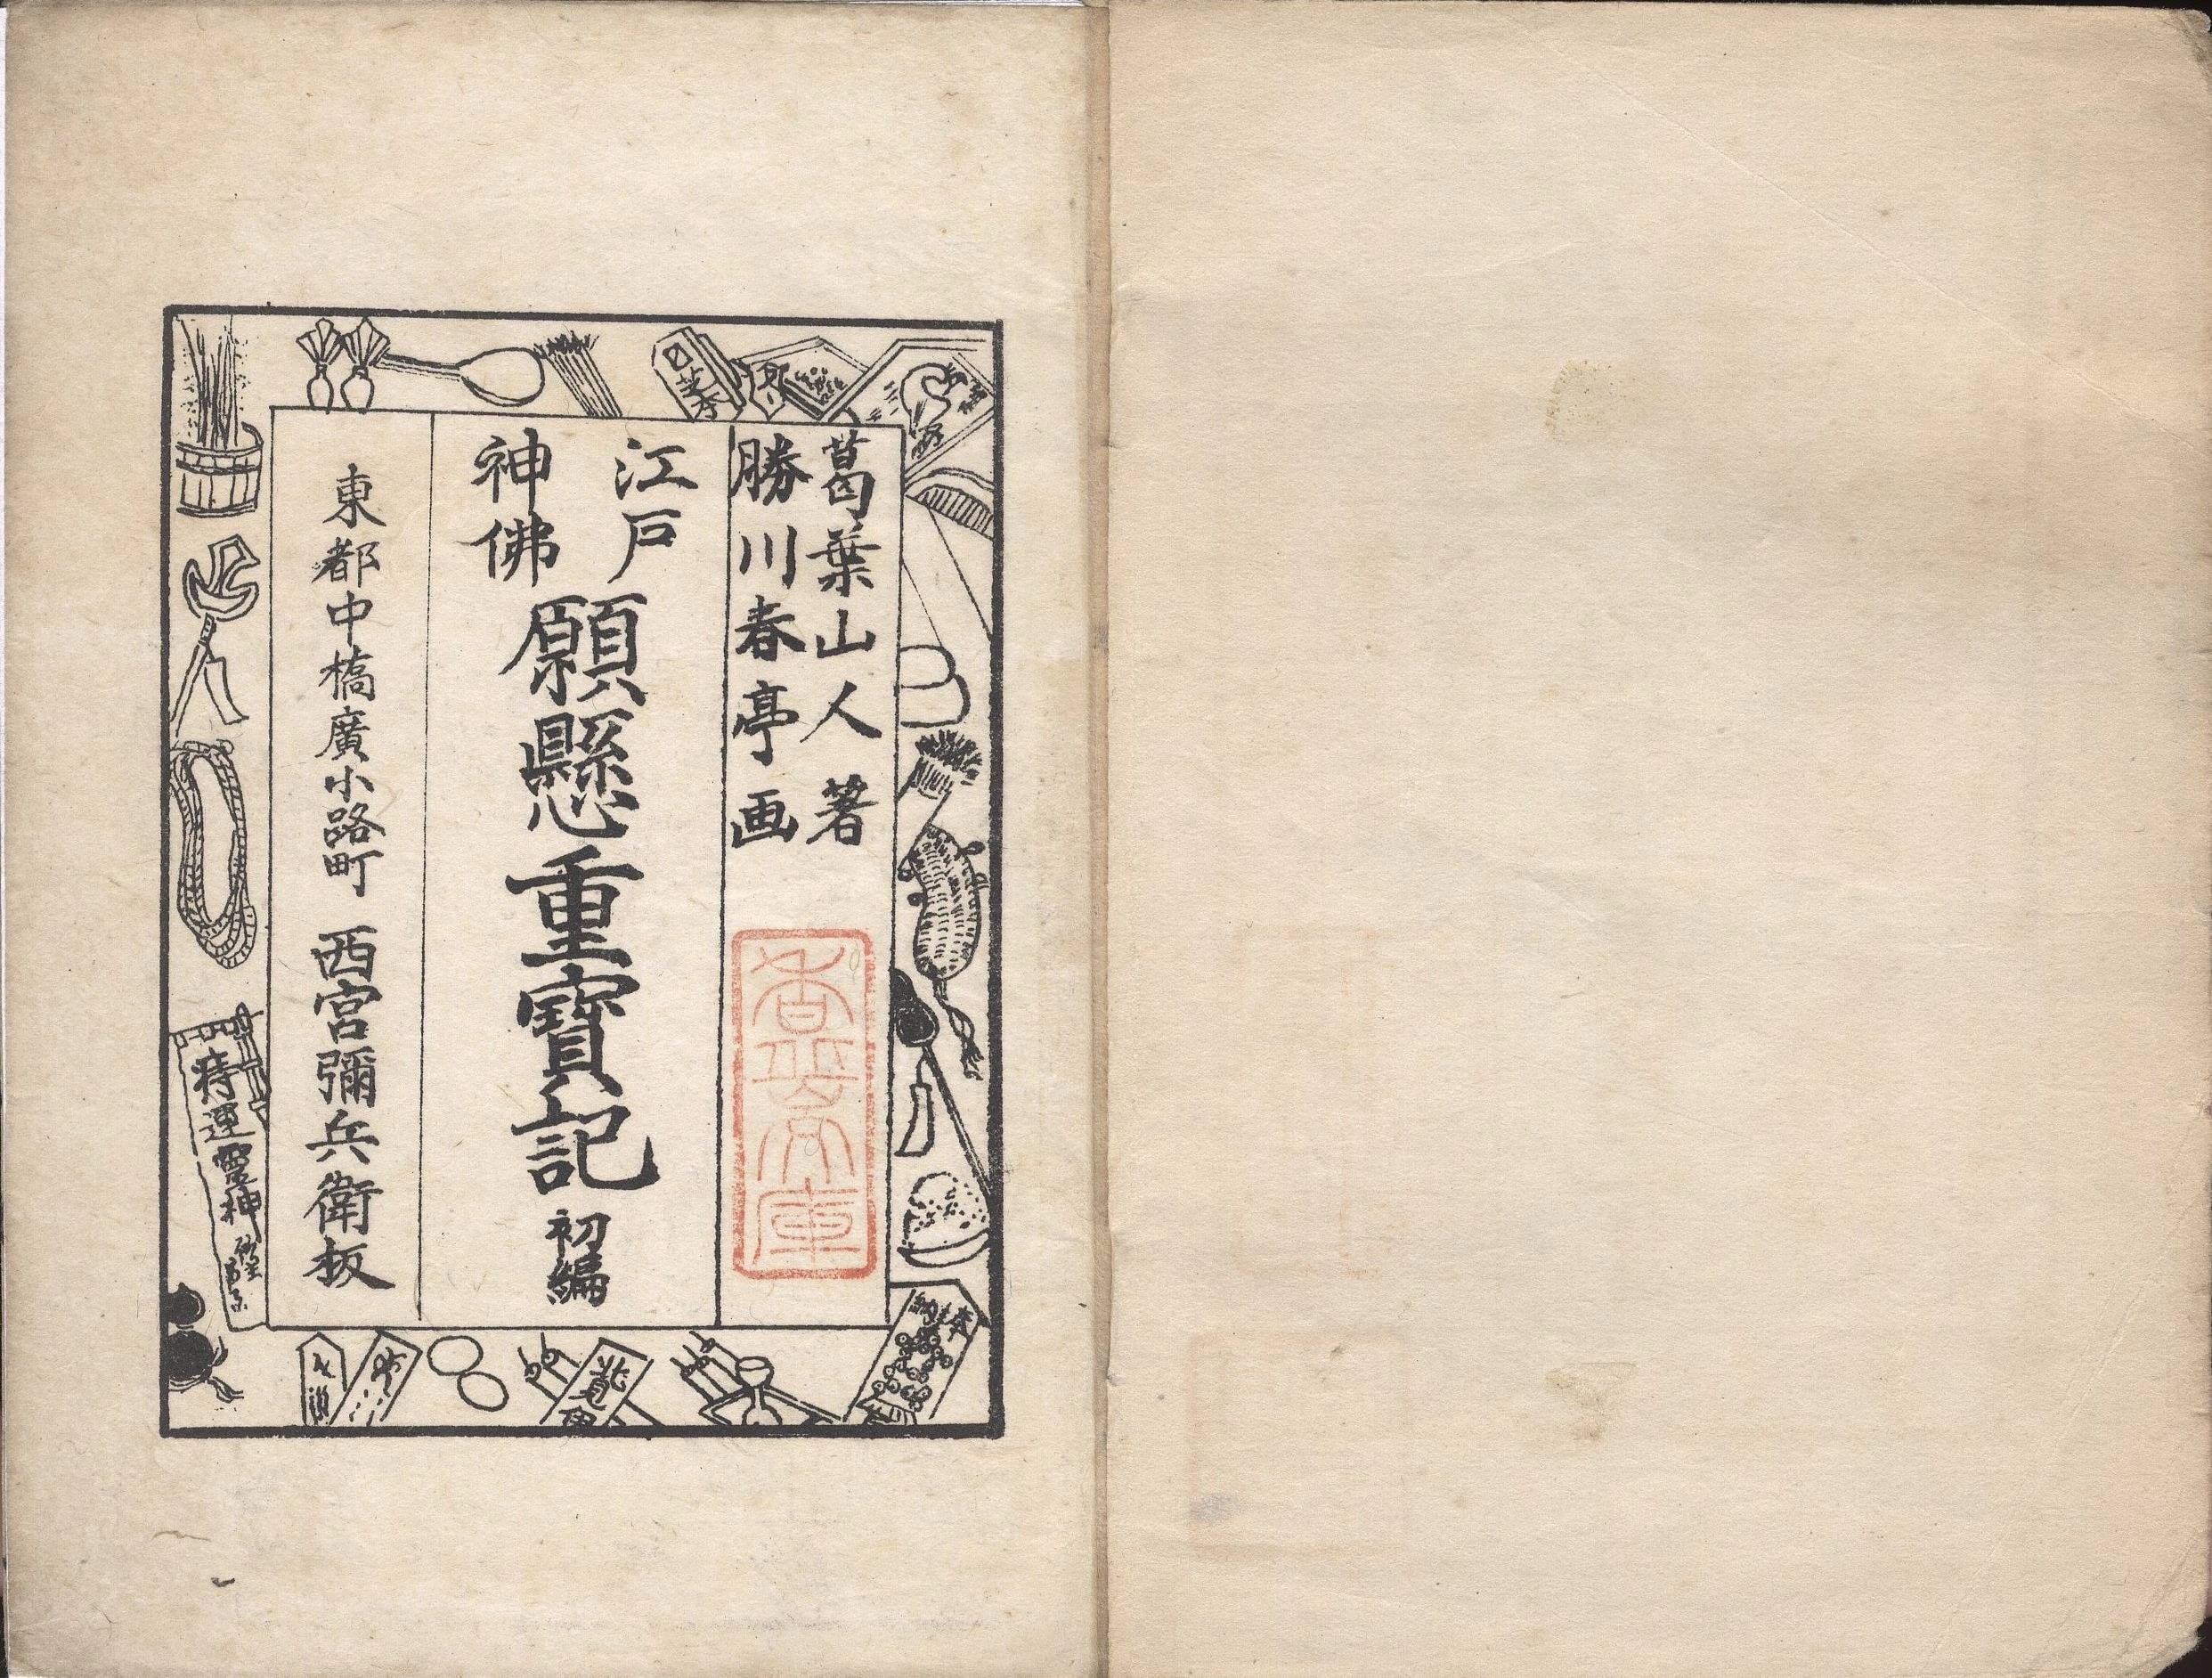 葛葉山人著
勝川春亭画
江戸
神佛
願懸重寳記 初編
東都中橋廣小路町 西宮彌兵衛板
痔運霊神
奉納